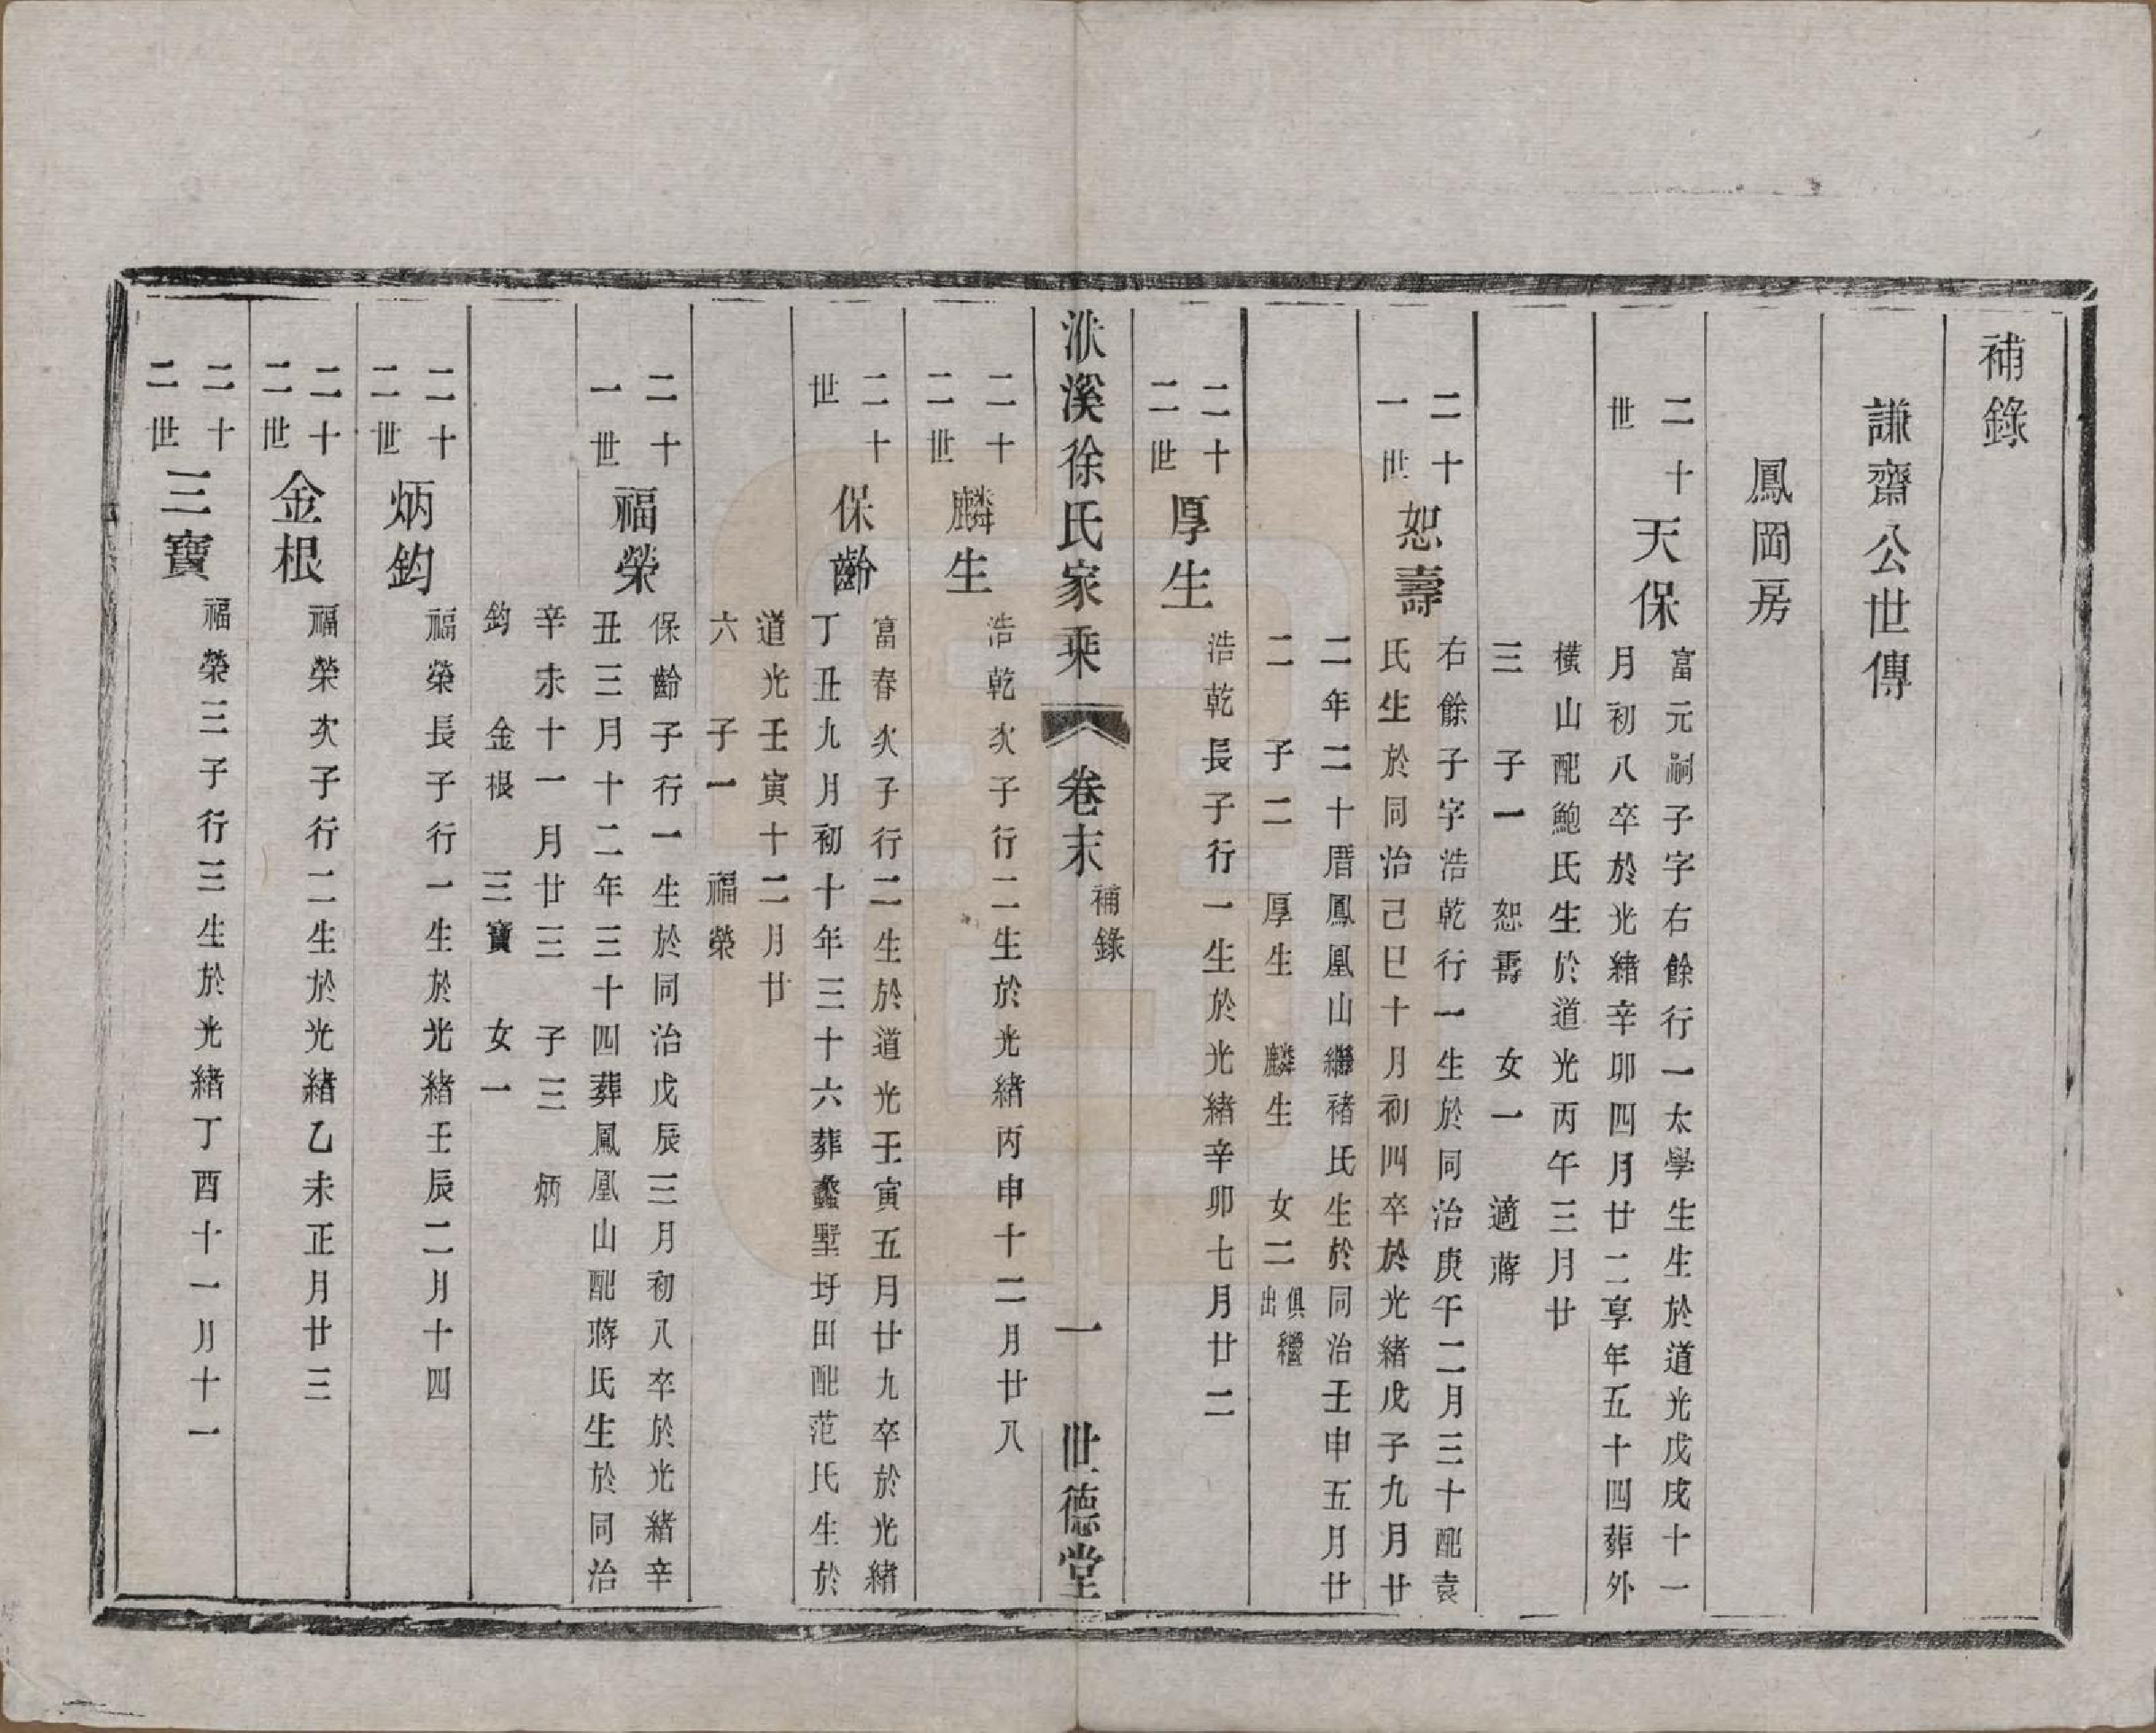 補錄
謙齋公世傳
鳳岡房
二十世
天保
富元嗣子字右餘行一太學生生於道光戊戌十一
月初八卒於光緒辛卯四月廿二享年五十四葬外
橫山配鮑氏生於道光丙午三月廿
三 子一 恕壽 女一 適蔣
二十一世
恕壽
右餘子字浩乾行一生於同治庚午二月三十配袁
氏生於同治己巳十月初四卒於光緒戊子九月廿
二年二十厝鳳凰山繼褚氏生於同治壬申五月廿
二 子二 厚生 麟生 女二俱繼出
二十二世
厚生
浩乾長子行一生於光緒辛卯七月廿二
洑溪徐氏家乘 卷末 補錄 一 世德堂
二十二世
麟生
浩乾次子行二生於光緒丙申十二月廿八
二十世
保齡
富春次子行二生於道光壬寅五月廿九卒於光緒
丁丑九月初十年三十六葬蠡墅圩田配范氏生於
道光壬寅十二月廿
六 子一 福榮
二十一世
福榮
保齡子行一生於同治戊辰三月初八卒於光緒辛
丑三月十二年三十四葬鳳凰山配蔣氏生於同治
辛未十一月廿三 子三 炳
鈞 金根 三寶 女一
二十二世
炳鈞
福榮長子行一生於光緒壬辰二月十四
二十二世
金根
福榮次子行二生於光緒乙未正月廿三
二十二世
三寶
福榮三子行三生於光緒丁酉十一月十一